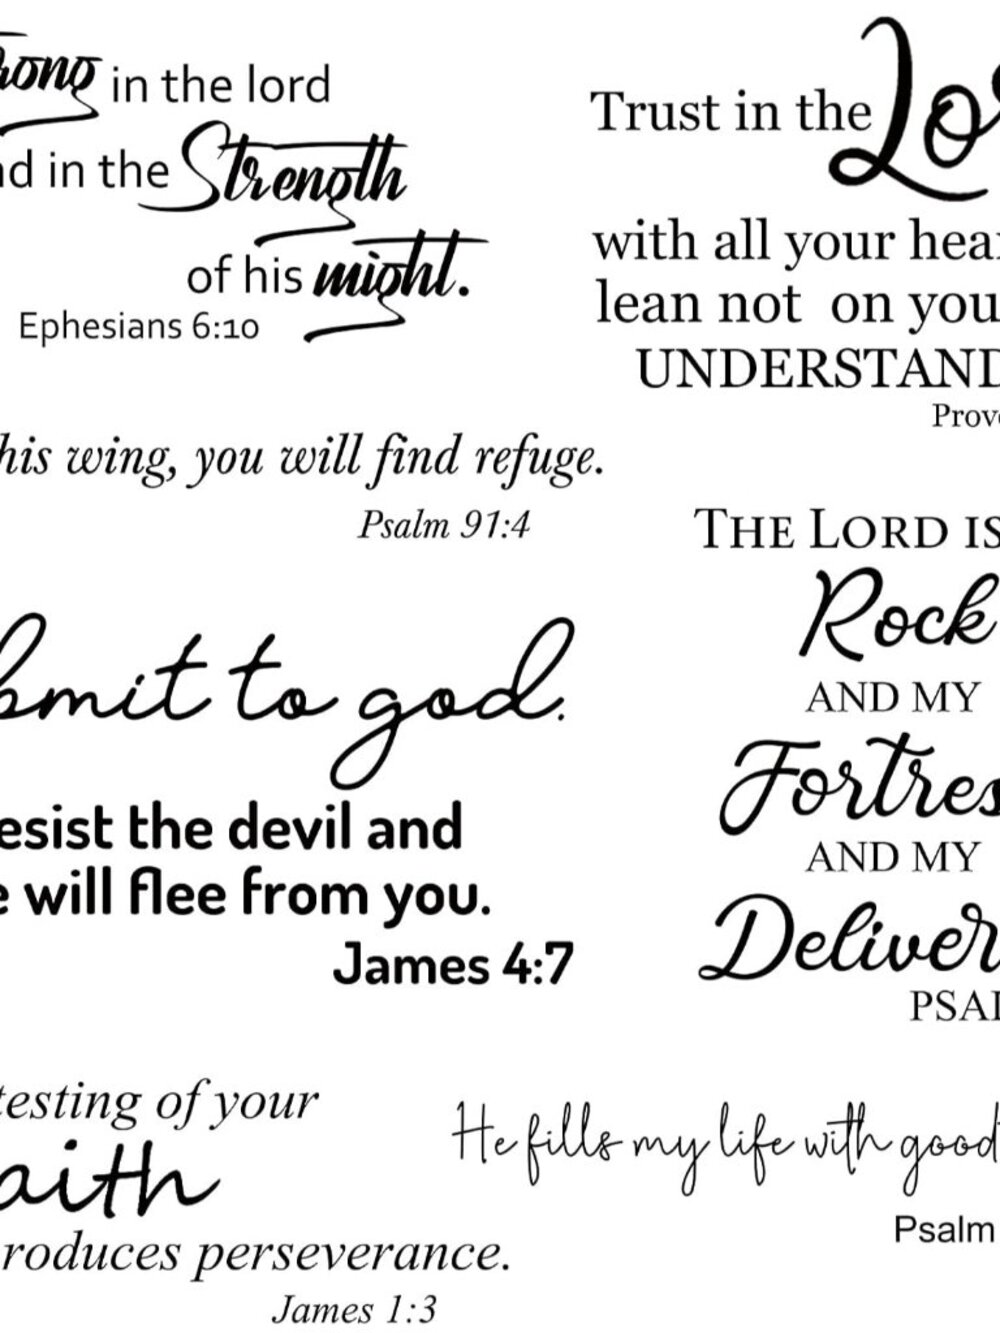 in the lord
in the Strength
of his might.
Ephesians 6:10
Trust in the
with all your
lean not on
Prov
his wing, you will find refuge.
Psalm 91:4
THE LORD IS
Rock
AND MY
AND MY
to god.
the devil and
will flee from you.
James 4:7
testing of your
perseverance.
James 1:3
He fills my life with good
Psalm